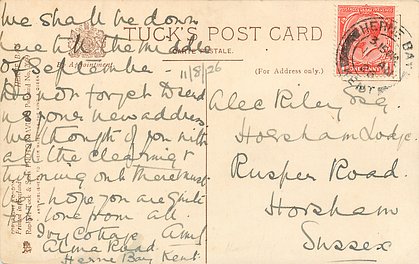 TUCK'S POST CARD
CARTE POSTALE.
By Appointment
(For Address only.)
HERNE BAY
KENT
11/8/26
We shall be down
here till the middle
of September.
Do not forget to send
new address
we thought of you with
all the clearing &
turning out there must
be hope you are quite
from all.
Ivy Cottage
Alma Road.
Herne Bay Kent
Alec Riley Esq.
Horsham Lodge.
Rusper Road.
Horsham
Sussex